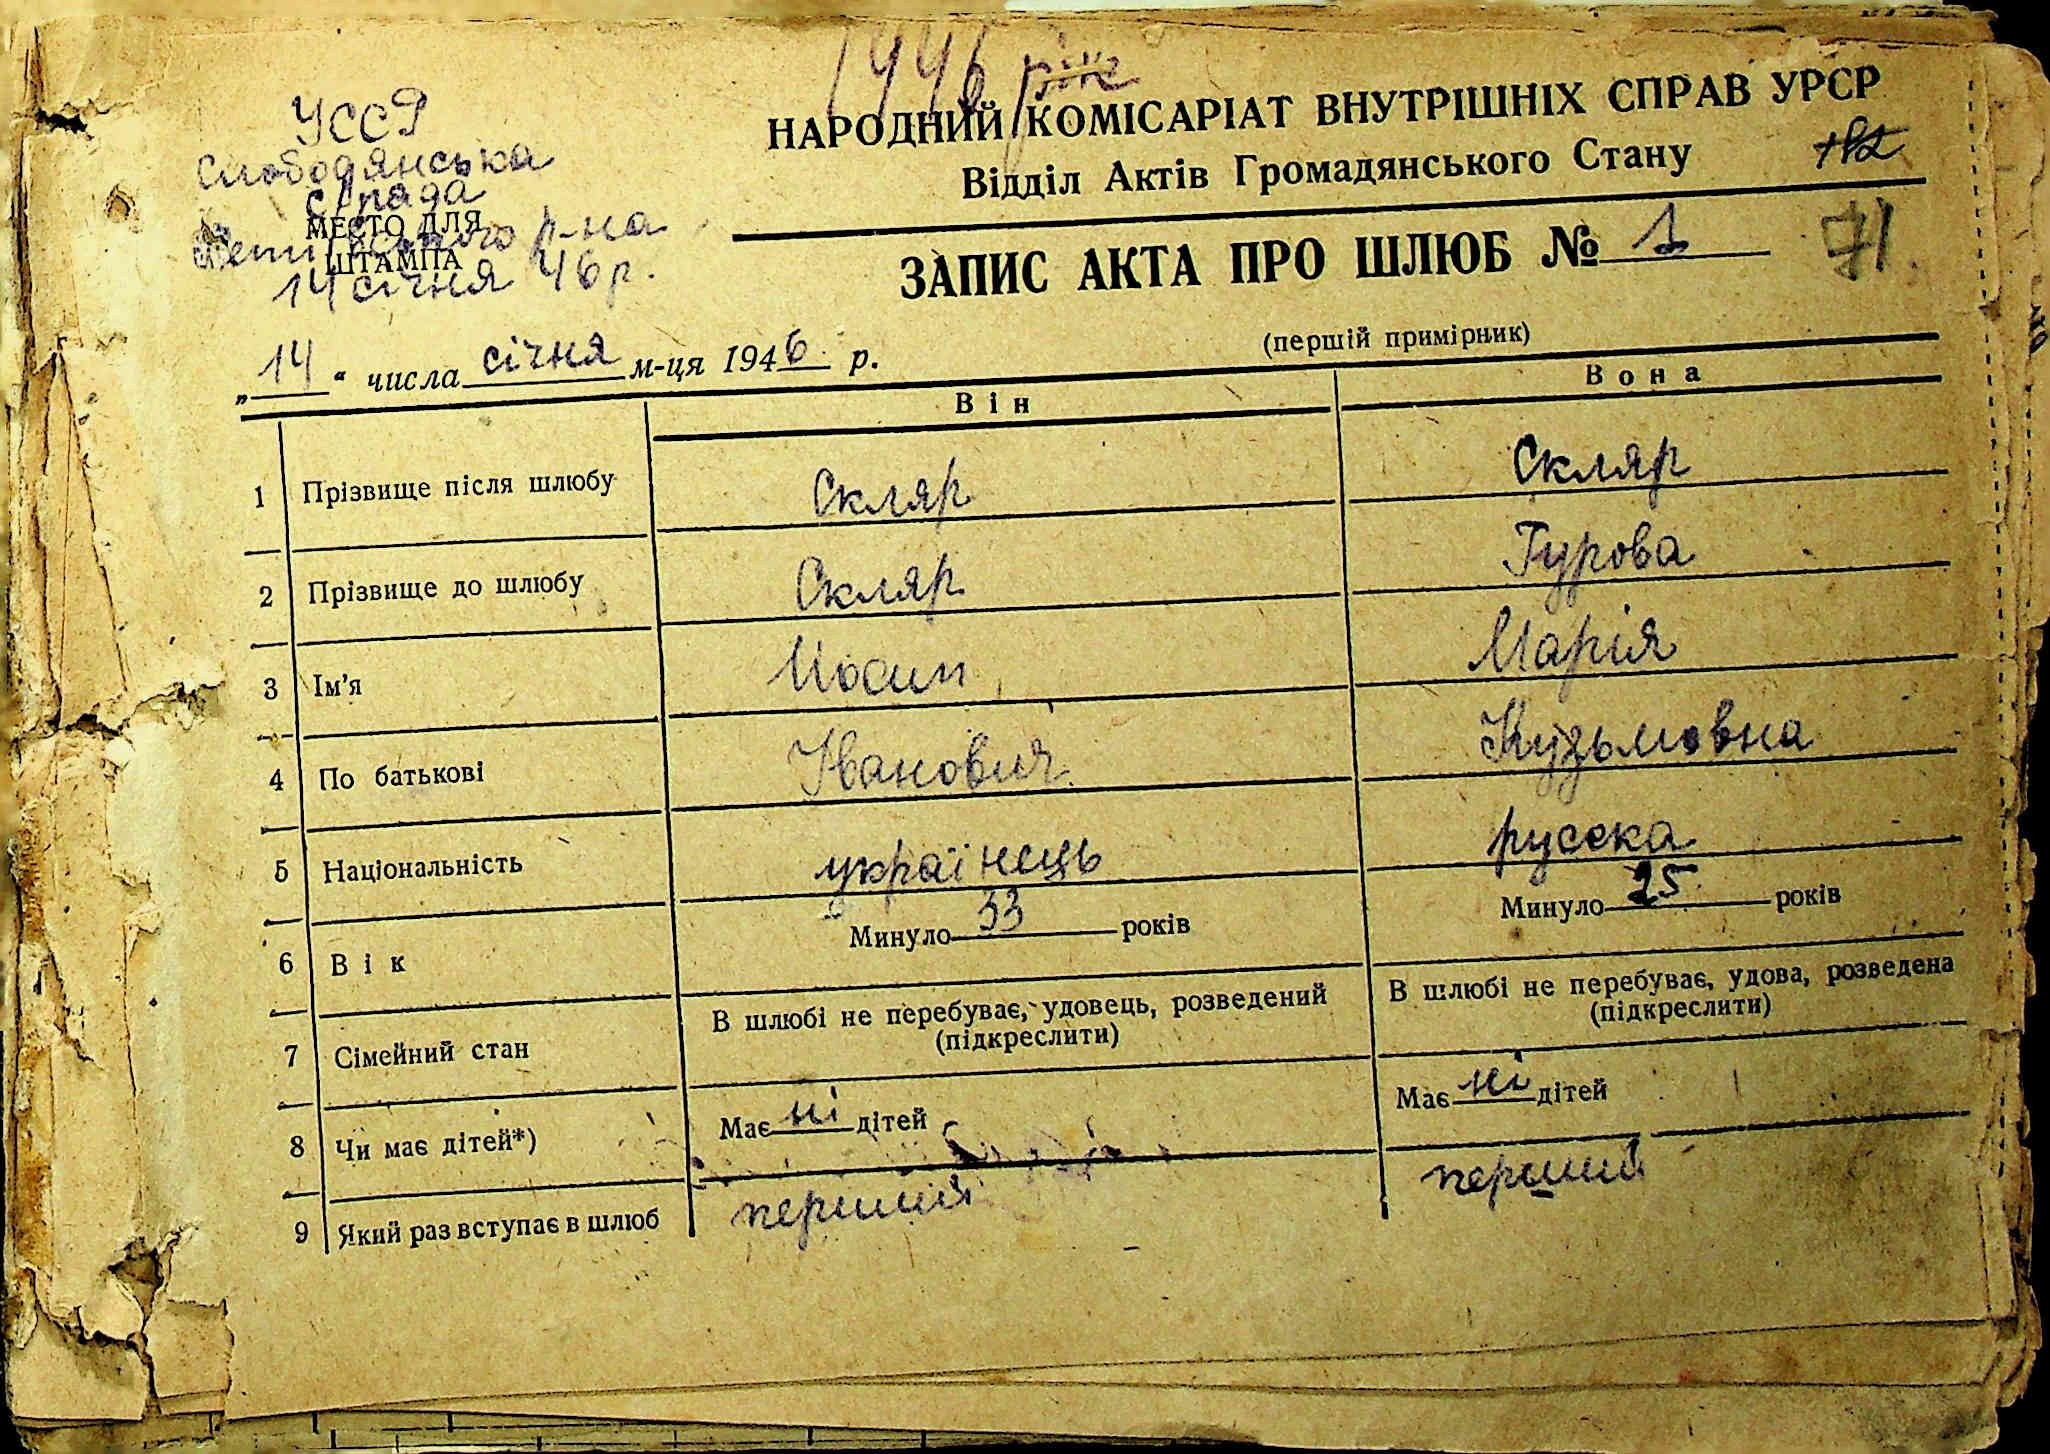 1946 рік
УССР
Слободянська
с/рада
МЕСТО ДЛЯ
р-на
ШТАМПА
14 січня 46 р.
НАРОДНИЙ КОМІСАРІАТ ВНУТРІШНІХ СПРАВ УРСР
Відділ Актів Громадянського Стану
ЗАПИС АКТА ПРО ШЛЮБ № 1
71.
(першій примірник)
„14“ числа січня м-ця 1946 р.
Він Вона
1 Прізвище після шлюбу Скляр Скляр
2 Прізвище до шлюбу Скляр Гурова
3 Ім'я Иосип Марія
4 По батькові Іванович Кузьмовна
5 Національність українець русска
6 Вік Минуло 33 років Минуло 25 років
7 Сімейний стан В шлюбі не перебуває, удовець, розведений (підкреслити) В шлюбі не перебуває, удова, розведена (підкреслити)
8 Чи має дітей*) Має ні дітей Має ні дітей
9 Який раз вступає в шлюб перший перший